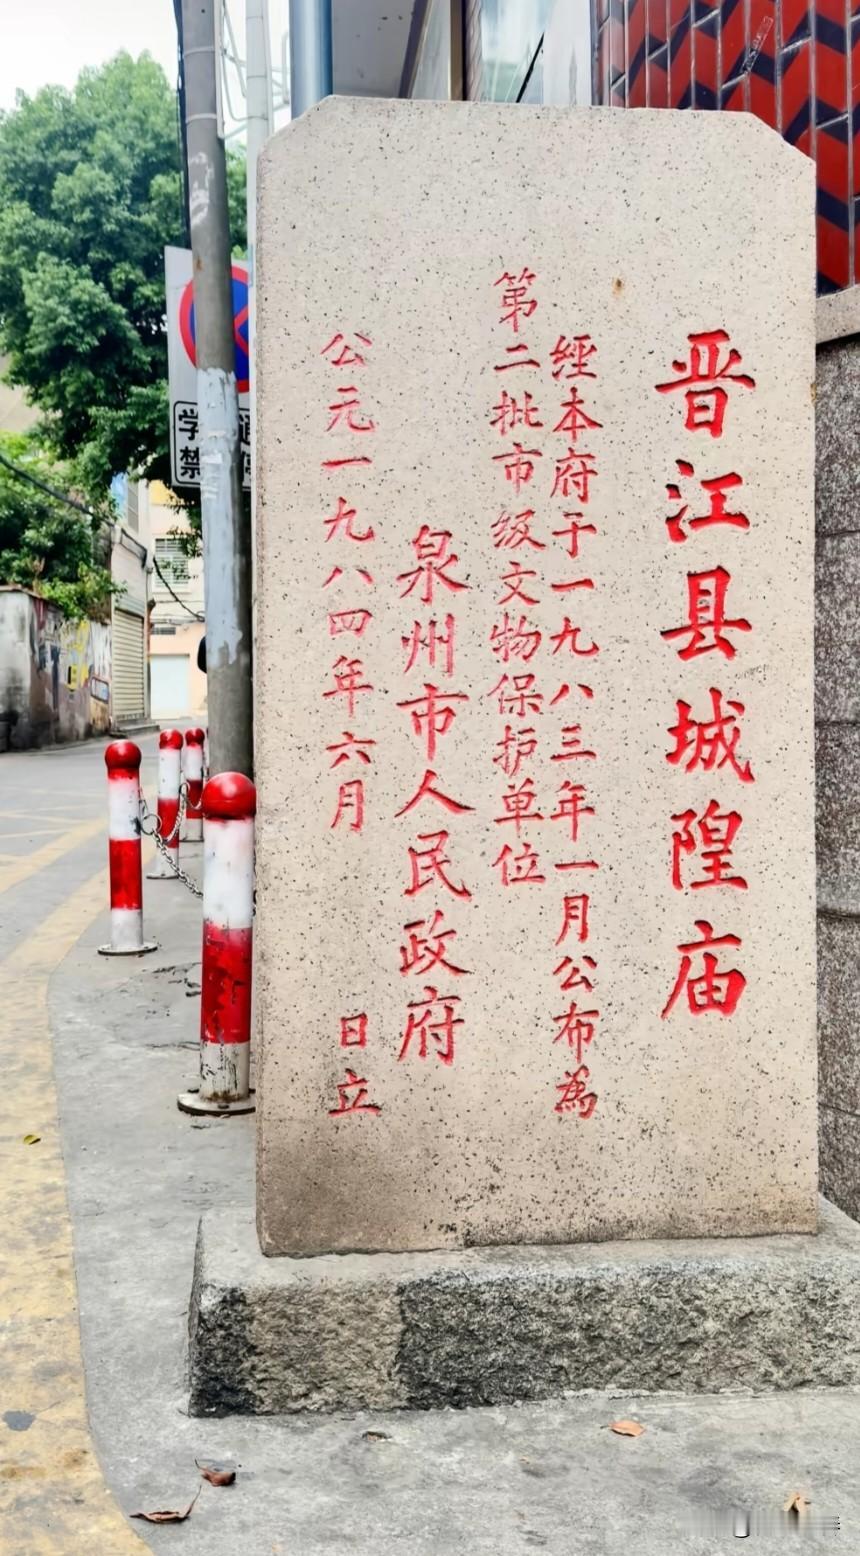 晋江县城隍庙
經本府于一九八三年一月公布為
第二批市级文物保护单位
泉州市人民政府
公元一九八四年六月 日立
学
禁